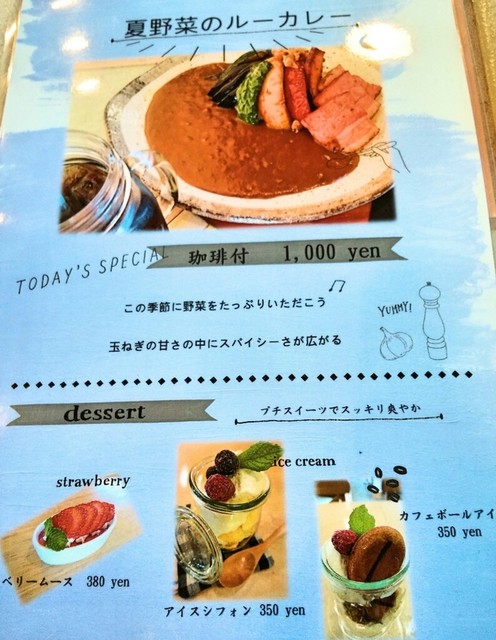 夏野菜のルーカレー
珈琲付 1,000 yen
TODAY'S SPECIAL
この季節に野菜をたっぷりいただこう
YUMMY!
玉ねぎの甘さの中にスパイシーさが広がる
dessert
プチスイーツでスッキリ爽やか
ice cream
strawberry
カフェボールアイ
350 yen
ベリームース 380 yen
アイスシフォン 350 yen